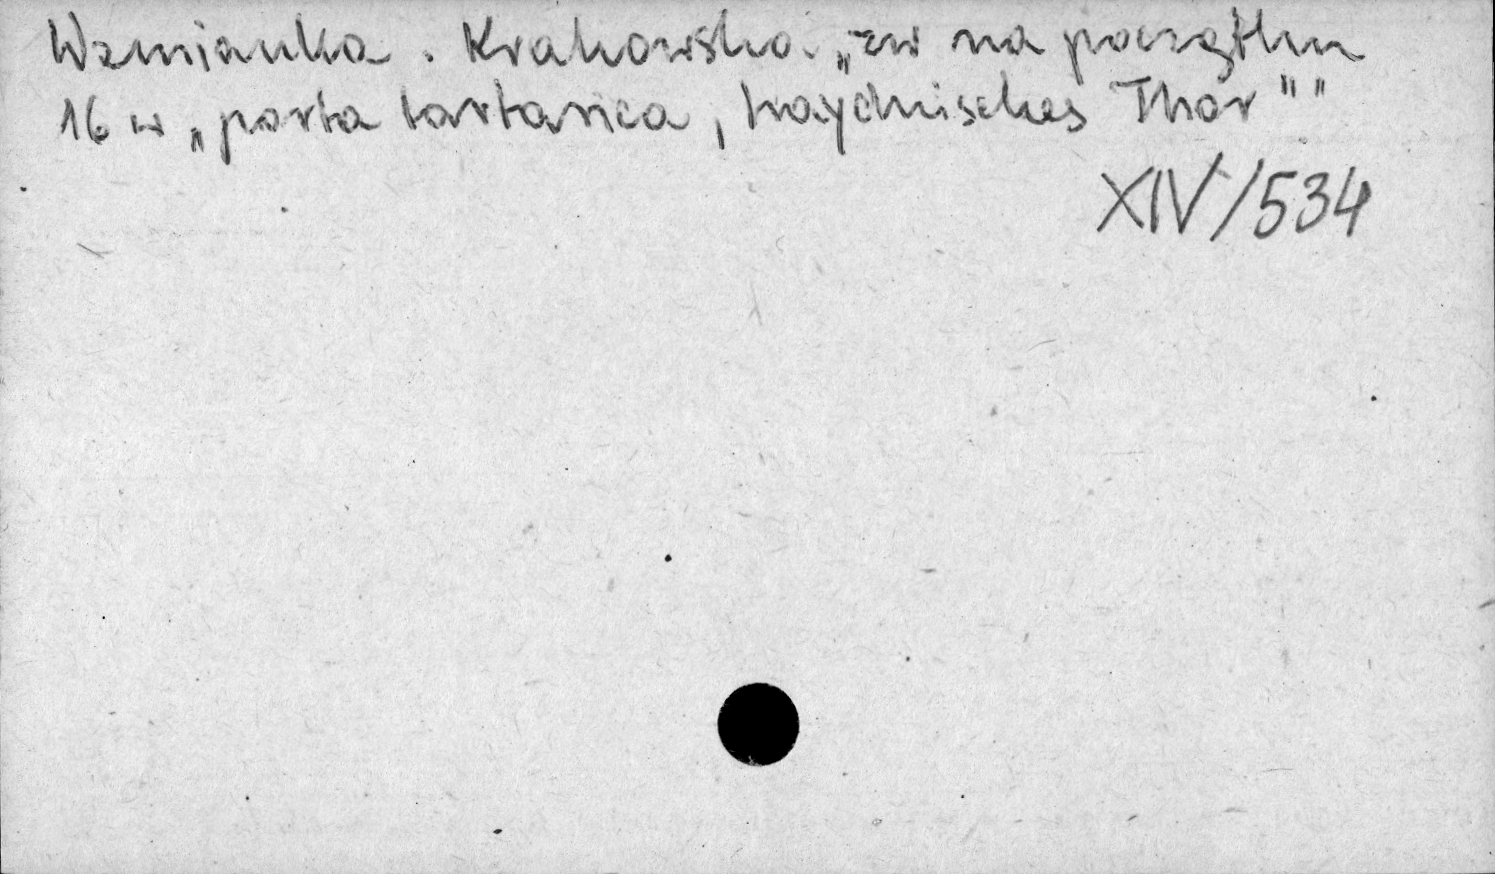 Wzmianka. Krakowska. „zw na początku
16 w „porta tartarica, haydnisches Thor" "
XIV/534